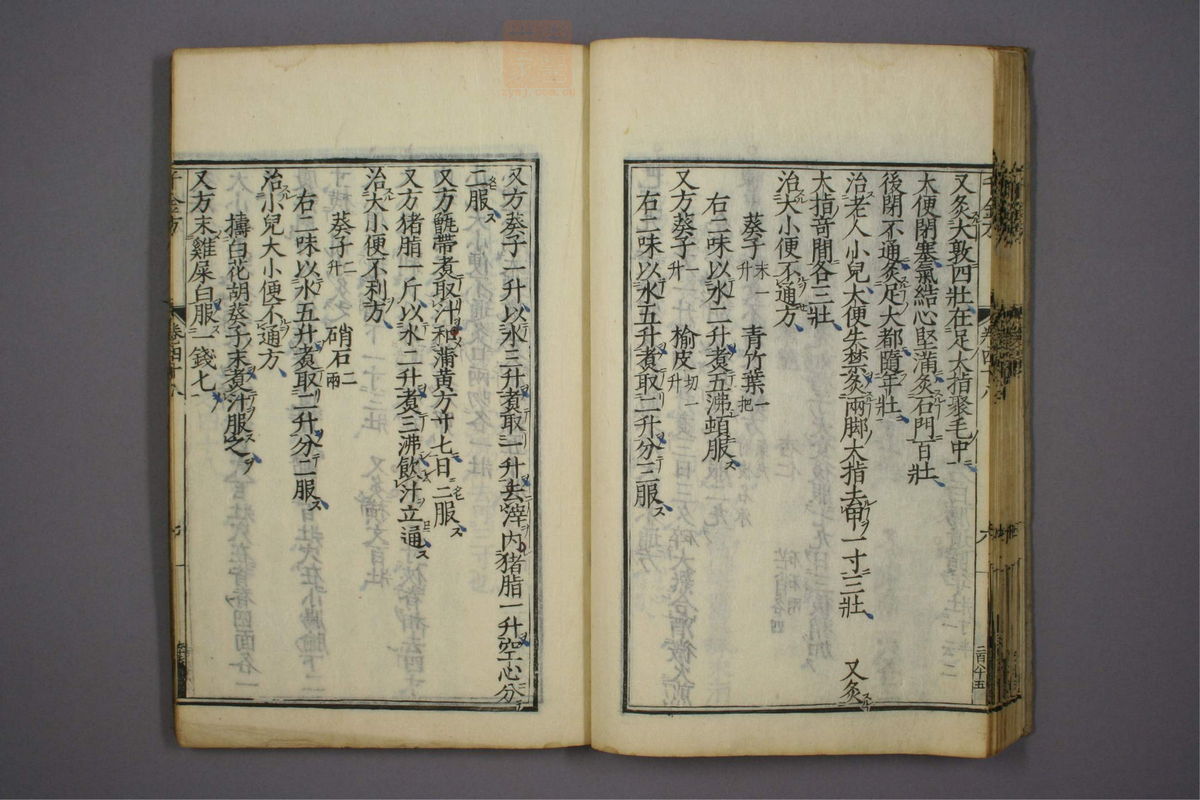 又灸大敦四壯在足大指聚毛中
大便閉塞氣結心堅滿灸石門百壯
後閉不通灸足大都隨年壯
治老人小兒大便失禁灸兩脚大指去甲一寸三壯 又灸
大指奇間各三壯
治大小便不通方
葵子末一升 青竹葉一把
右二味以水二升煮五沸頓服
又方葵子一升 榆皮切一升
右二味以水五升煮取二升分三服
卷四十八
六
二百八十五
又方葵子一升以水三升煮取一升去滓內猪脂一升空心分
二服
又方甑帶煮取汁和蒲黃方寸匕日二服
又方猪脂一斤以水二升煮三沸飲汁立通
治大小便不利方
葵子二升 硝石二兩
右二味以水五升煮取二升分二服
治小兒大小便不通方
擣白花胡葵子末煮汁服之
又方末雞屎白服一錢匕
千金方
卷四十八